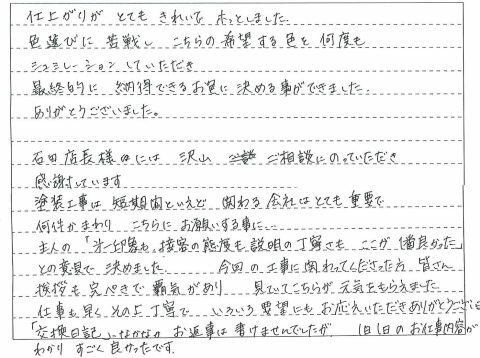 仕上がりが とても きれいで ホッとしました。
色選びに 苦戦し こちらの希望する色と 何度も
シュミレーションしていただき
最終的に 納得できるお色に 決める事ができました。
ありがとうございました。
石田店長様には 沢山 ご相談にのっていただき
感謝しています
塗装工事は 短期間といえど 関わる会社はとても重要で
何件かまわり こちらに お願いする事に…
主人の 「第一印象も、接客の態度も説明の丁寧さも ここが1番良かった」
との意見で 決めました。 今回の工事に関わってくださった方 皆さん
挨拶も完ぺきで 覇気があり 見ていてこちらが 元気をもらえました
仕事も早く その上丁寧で いろいろ要望にも お応えいただきありがとうございました
「交換日記」、なかなか お返事は書けませんでしたが 1日1日のお仕事内容が
わかり すごく良かったです.